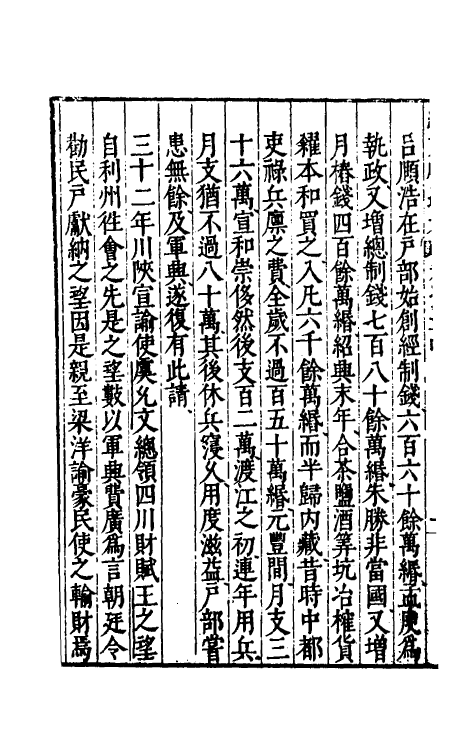 吕頤浩在戸部始創經制錢六百六十餘萬緡孟庾爲
執政又增總制錢七百八十餘萬緡朱勝非當國又增
月樁錢四百餘萬緡紹興末年合茶鹽酒筭坑冶榷貨
糴本和買之入凡六千餘萬緡而半歸内藏昔時中都
吏祿兵廪之費全歲不過百五十萬緡元豐間月支三
十六萬宣和崇侈然後支百二萬渡江之初連年用兵
月支猶不過八十萬其後休兵寖久用度滋益戸部嘗
患無餘及軍興遂復有此請
三十二年川陜宣諭使虞允文總領四川財賦王之望
自利州徃會之先是之望數以軍興費廣爲言朝廷令
勸民戸獻納之望因是親至梁洋諭豪民使之輸財焉